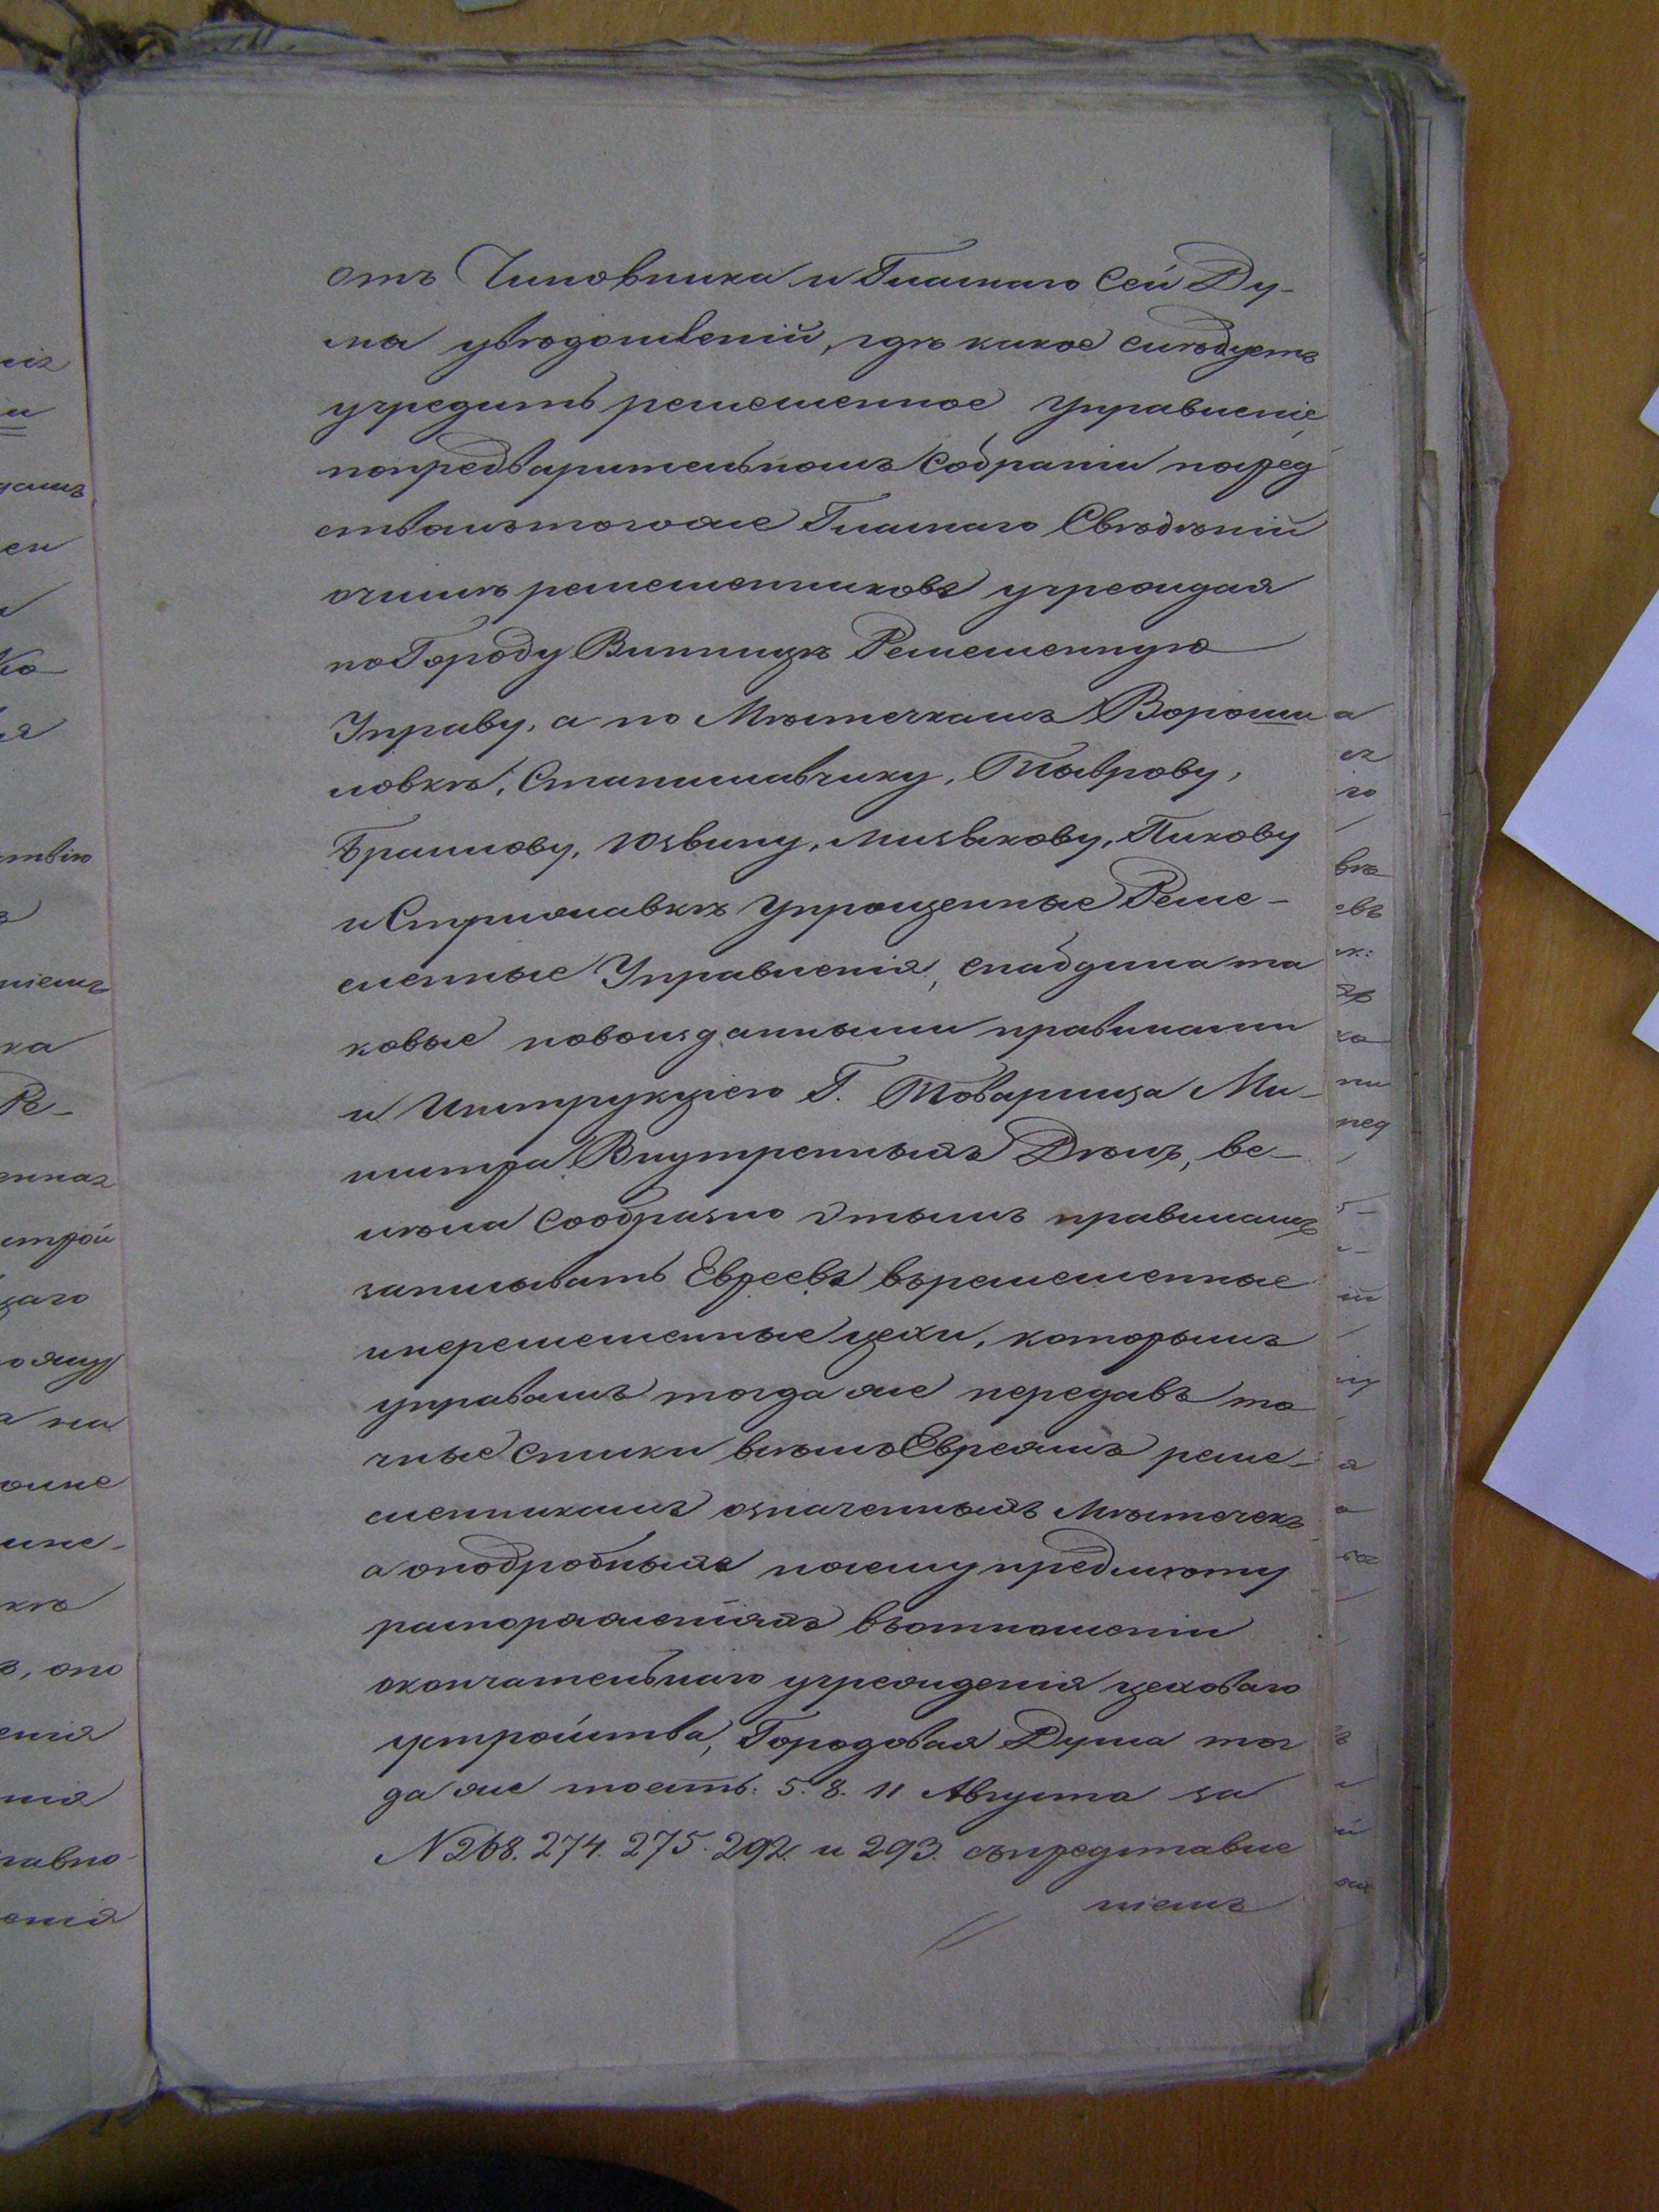 отъ Чиновника и Гласнаго сей Ду-
ма увѣдомленій, гдѣ какое слѣдуетъ
учредить ремесленное управленіе,
попредварительномъ собраніи посред
ствомътогоже Гласнаго Свѣдѣній
очислѣ ремесленниковъ учреждая
по Городу Винницѣ Ремесленную
Управу, а по Мѣстечкамъ Вороши
ловкѣ, Станиславчику, Тыврову,
Браилову, Юзвину, Мизякову, Пикову
и Стрижавкѣ упрощенные Реме-
сленные Управленія, снабдила та
ковые новоизданными правилами
и Инструкціею Г. Товарища Ми-
нистра Внутренныхъ Дѣлъ, ве-
лѣла сообразно этымъ правиламъ
записывать Евреевъ въремесленные
инеремесленные цехи, которымъ
управамъ тогда же передавъ то
чные списки всѣмъ Евреямъ реме-
сленникамъ означенныхъ Мѣстечекъ
а оподробныхъ посему предмѣту
распоряженіяхъ вотношеніи
окончательнаго учрежденія цеховаго
устройства, Городовая Дума тог
да же тоесть: 5. 8. 11 Августа за
№ 268. 274. 275. 292. и 293. съпредставле
ніемъ